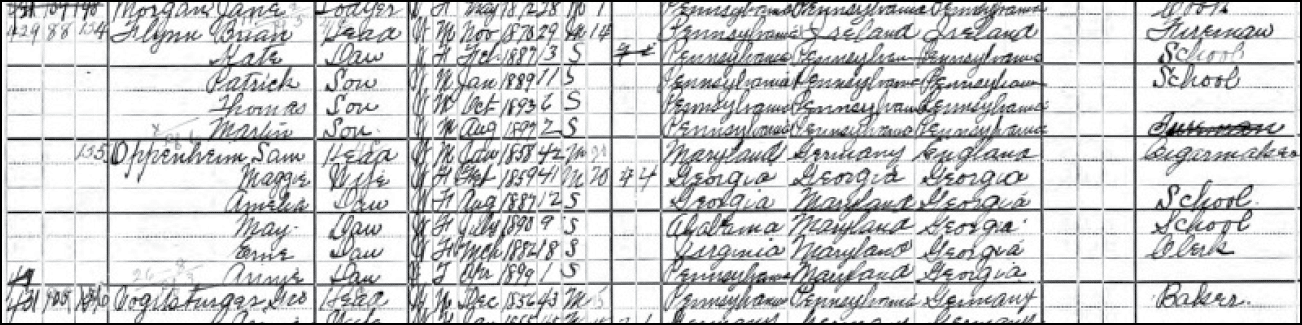 Morgan Jane Lodger W F May 1872 28 1 Pennsylvania Pennsylvania Pennsylvania Cook
429 88 134 Flynn Brian Head W M Nov 1870 29 M 14 Pennsylvania Ireland Ireland Fireman
Kate Daw W F Feb 1887 13 S Pennsylvania Pennsylvania Pennsylvania School
Patrick Son W M Jan 1889 11 S Pennsylvania Pennsylvania Pennsylvania School
Thomas Son W M Oct 1893 6 S Pennsylvania Pennsylvania Pennsylvania
Martin Son W M Aug 1897 2 S Pennsylvania Pennsylvania Pennsylvania
135 Oppenheim Sam Head W M Jan 1858 42 M Maryland Germany England Cigarmaker
Maggie Wife W F 1859 41 M 20 4 4 Georgia Georgia Georgia
Amelia Daw W F Aug 1887 12 S Georgia Maryland Georgia School
May Daw W F July 1890 9 S Alabama Maryland Georgia School
Daw W F Mch 1882 18 S Virginia Maryland Georgia Clerk
Annie Daw W F Apr 1899 1 S Pennsylvania Maryland Georgia
431 Geo Head W M Dec 1856 43 M Pennsylvania Pennsylvania Germany Baker